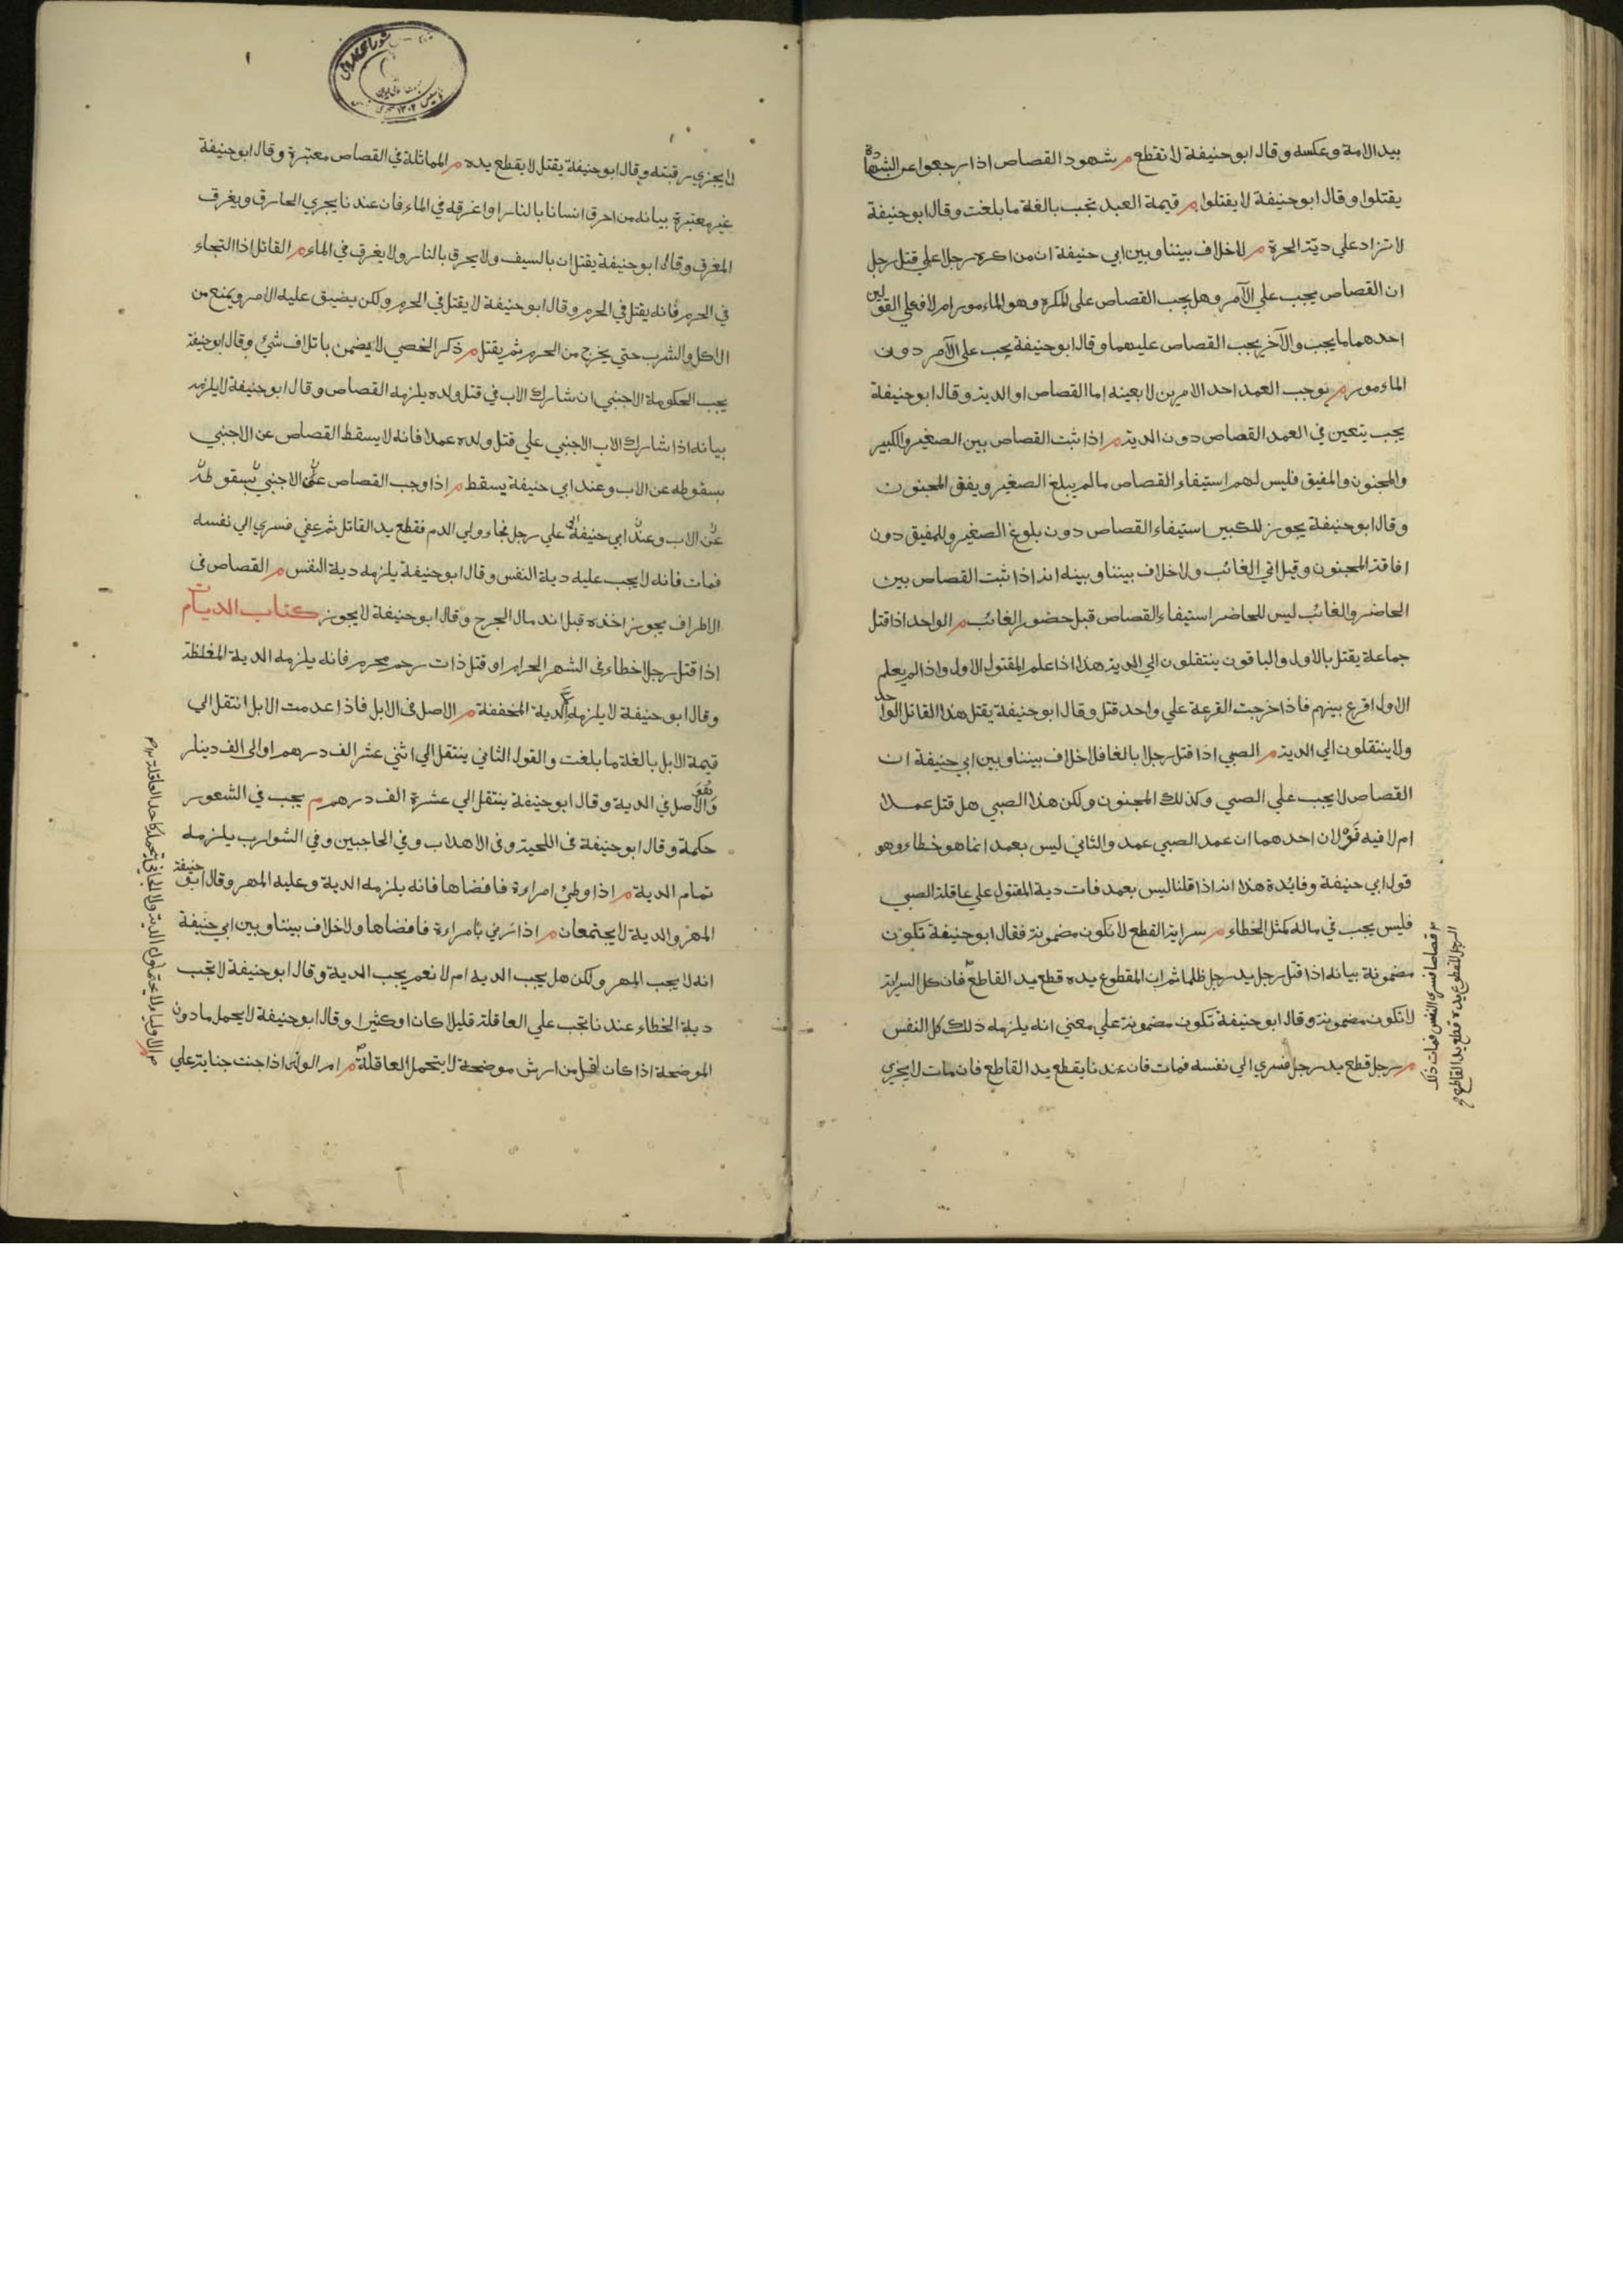 بيد الامة وعكسه وقال ابو حنيفة لا تقطع م شهود القصاص اذا رجعوا عن الشهادة
يقتلوا وقال ابو حنيفة لا يقتلوا م قيمة العبد تجب بالغة ما بلغت وقال ابو حنيفة
لا تزاد على دية الحرة م لا خلاف بيننا وبين ابي حنيفة ان من اكره رجلا علي قتل رجل
ان القصاص يجب علي الآمر وهل يجب القصاص على المكره وهو الماءمور ام لا فعلي القولين
احدهما ما يجب والآخر يجب القصاص عليهما وقال ابو حنيفة يجب على الآمر دون
الماءمور م توجب العمد احد الامرين لا بعينه اما القصاص او الدية وقال ابو حنيفة
يجب يتعين في العمد القصاص دون الدية م اذا ثبت القصاص بين الصغير والكبير
والمجنون والمفيق فليس لهم استيفاء القصاص ما لم يبلغ الصغير ويفق المجنون
وقال ابو حنيفة يجوز للكبير استيفاء القصاص دون بلوغ الصغير وللمفيق دون
افاقة المجنون وقيل اتي الغائب ولا خلاف بيننا وبينه انه اذا ثبت القصاص بين
الحاضر والغائب ليس للحاضر استيفاء القصاص قبل حضور الغائب م الواحد اذا قتل
جماعة يقتل بالاول والباقون ينتقلون الي الدية هذا اذا علم المقتول الاول واذا لم يعلم
الاول اقرع بينهم فاذا خرجت القرعة علي واحد قتل وقال ابو حنيفة يقتل هذا القاتل الواحد
ولا ينتقلون الي الدية م الصبي اذا قتل رجلا بالغا فلا خلاف بيننا وبين ابي حنيفة ان
القصاص لا يجب علي الصبي وكذلك المجنون ولكن هذا الصبي هل قتل عمدا
ام لا فيه قولان احدهما ان عمد الصبي عمد والثاني ليس بعمد انما هو خطاء وهو
قول ابي حنيفة وفايدة هذا انه اذا قلنا ليس بعمد فات دية المقتول علي عاقلة الصبي
فليس يجب في ماله كمثل الخطاء م سراية القطع لا تكون مضمونة فقال ابو حنيفة تكون
مضمونة بيانه اذا قتل رجل يد رجل ظلما ثم ان المقطوع يده قطع يد القاطع فان كل السراية
لا تكون مضمونة وقال ابو حنيفة تكون مضمونة علي معني انه يلزمه ذلك كل النفس
م رجل قطع يد رجل فسري الي نفسه فمات فان عندنا يقطع يد القاطع فان مات لا يجزي
قصاصا فسري النفس فمات ذلك
الرجل المقطوع يده قطع يد القاطع
لا يجزي رقبته وقال ابو حنيفة يقتل لا يقطع يده م المماثلة في القصاص معتبرة وقال ابو حنيفة
غير معتبرة بيانه من احرق انسانا بالنار او اغرقه في الماء فان عندنا يجري الحارق ويغرق
المغرق وقال ابو حنيفة يقتلان بالسيف ولا يحرق بالنار ولا يغرق في الماء م القاتل اذا التجاء
في الحرم فانه يقتل في الحرم وقال ابو حنيفة لا يقتل في الحرم ولكن يضيق عليه الامر ويمنع من
الاكل والشرب حتي يخرج من الحرم ثم يقتل م ذكر الخصي لا يضمن باتلاف شئ وقال ابو حنيفة
يجب الحكومة الاجنبي ان شارك الاب في قتل ولده يلزمه القصاص وقال ابو حنيفة لا يلزمه
بيانه اذا شارك الاب الاجنبي علي قتل ولده عمدا فانه لا يسقط القصاص عن الاجنبي
بسقوطه عن الاب وعند ابي حنيفة يسقط م اذا وجب القصاص علي الاجنبي بسقوطه
عن الاب وعند ابي حنيفة علي رجل فجاء ولي الدم فقطع يد القاتل ثم عفي فسري الي نفسه
فمات فانه لا يجب عليه دية النفس وقال ابو حنيفة يلزمه دية النفس م القصاص في
الاطراف يجوز اخذه قبل اندمال الجرح وقال ابو حنيفة لا يجوز كتاب الديات م
اذا قتل رجلا خطاء في الشهر الحرام او قتل ذات رحم محرم فانه يلزمه الدية المغلظة
وقال ابو حنيفة لا يلزمه الدية المخففة م الاصل في الابل فاذا عدمت الابل انتقل الي
قيمة الابل بالغة ما بلغت والقول الثاني ينتقل الي اثني عشر الف درهم او الى الف دينار
وهو الاصل في الدية وقال ابو حنيفة ينتقل الي عشرة الف درهم م يجب في الشعور
حكمة وقال ابو حنيفة في اللحية وفي الاهداب وفي الحاجبين وفي الشوارب يلزمه
تمام الدية م اذا وطئ امراءة فافضاها فانه يلزمه الدية وعليه المهر وقال ابو حنيفة
المهر والدية لا يجتمعان م اذا زني بامراءة فافضاها ولا خلاف بيننا وبين ابي حنيفة
انه لا يجب المهر ولكن هل يجب الدية ام لا نعم يجب الدية وقال ابو حنيفة لا تجب
دية الخطاء عندنا تجب علي العاقلة قليلا كان او كثيرا وقال ابو حنيفة لا يحمل ما دون
الموضحة اذا كان اقل من ارش موضحة لا يتحمل العاقلة م ام الولد اذا جنت جناية علي